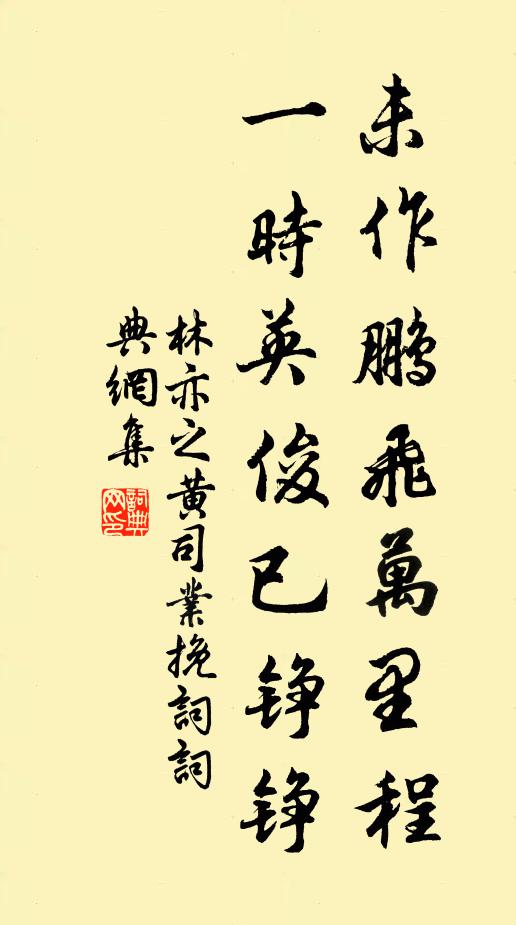 未作鹏飛萬里程
一時英俊已铮铮
林亦之黄司業挽詞詞
典網集
詞典网印